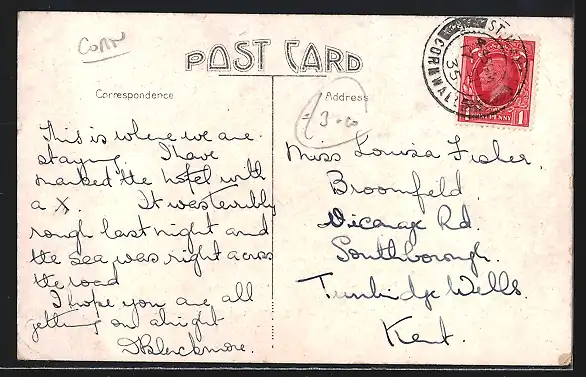 Corn
POST CARD
Correspondence
Address
3.00
This is where we are
staying. I have
marked the hotel with
a X. It was terribly
rough last night and
the sea was right across
the road
I hope you are all
getting on alright
Blackmore.
Miss Louisa Fisher.
Broomfield
Vicarage Rd.
Southborough.
Tunbridge Wells.
Kent.
ST.
CORNWALL
35
PENNY
1